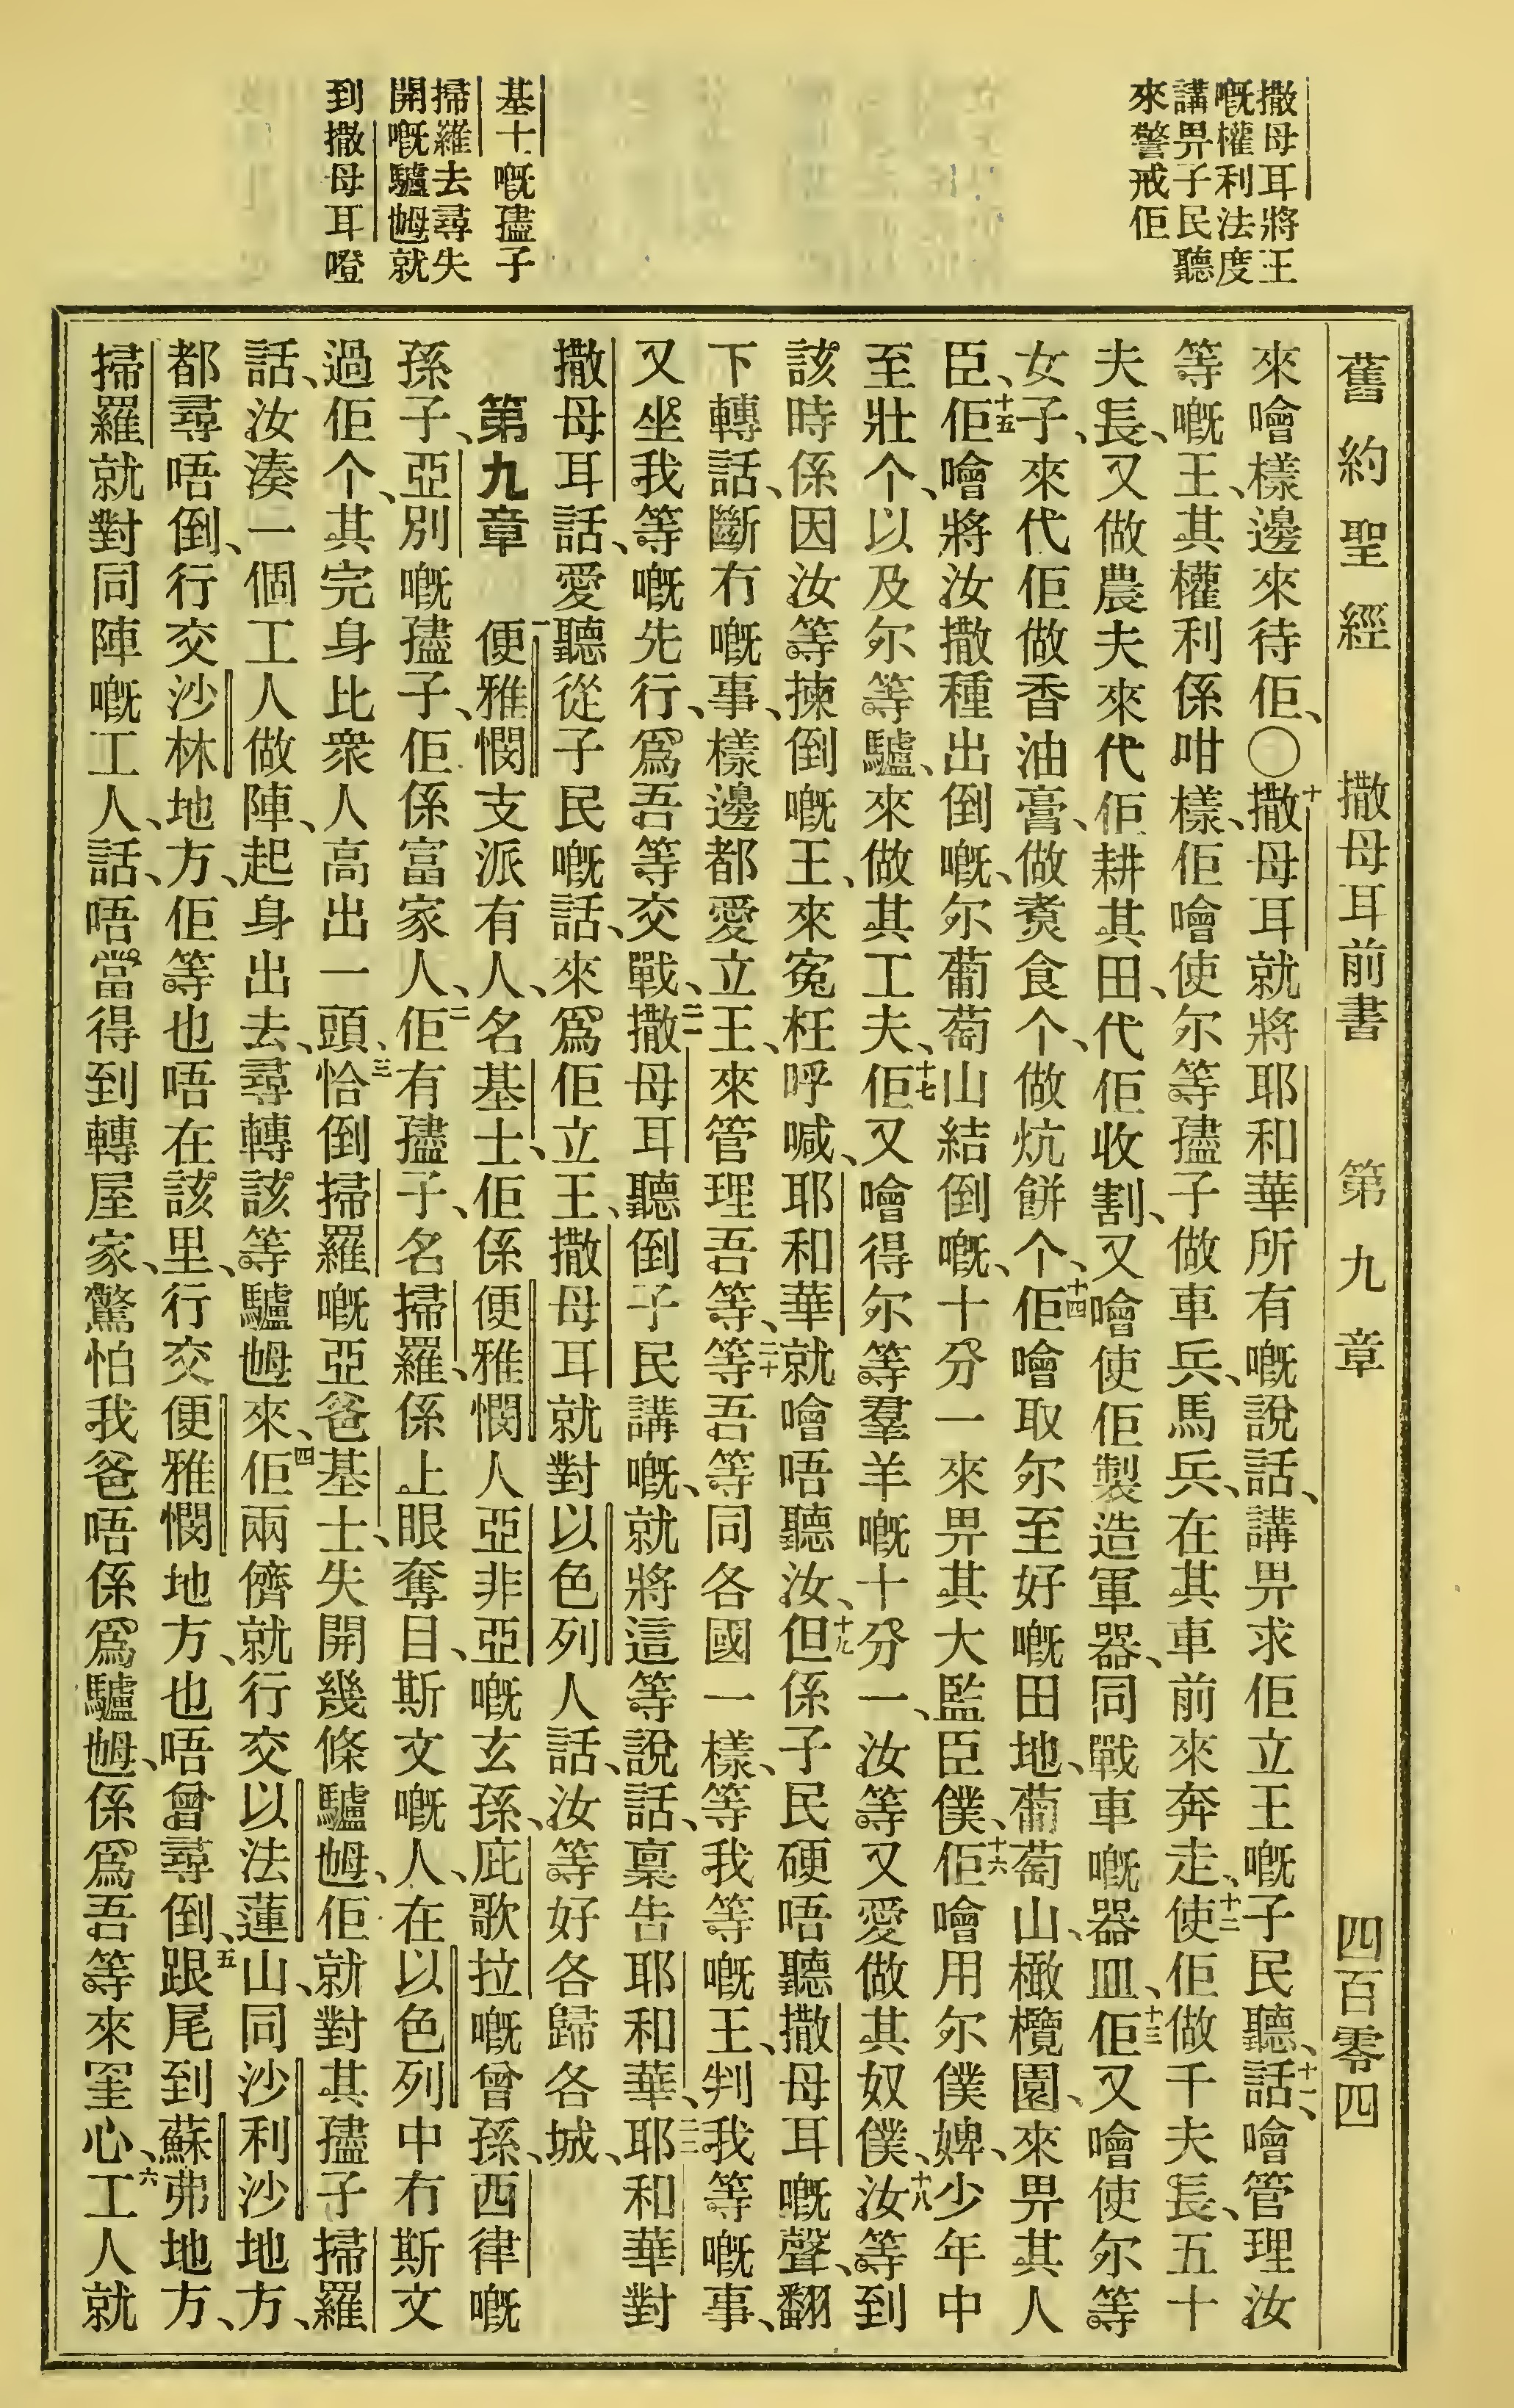 舊約聖經 撒母耳前書 第九章 四百零四
撒母耳將王
嘅權利法度
講畀子民聽
來警戒佢
基士嘅𡥧子
掃羅去尋失
開嘅驢乸就
到撒母耳嶝
來噲樣邊來待佢、〇十撒母耳就將耶和華所有嘅說話、講畀求佢立王嘅子民聽、十一話、噲管理汝
等嘅王、其權利係咁樣、佢噲使尔等𡥧子做車兵、馬兵、在其車前來奔走、十二使佢做千夫長、五十
夫長、又做農夫來代佢耕其田、代佢收割、又噲使佢製造軍器、同戰車嘅器皿、十三佢又噲使尔等
女子、來代佢做香油膏、做煑食个、做炕餅个、十四佢噲取尔至好嘅田地、葡萄山、橄欖園、來畀其人
臣、十五佢噲將汝撒種出倒嘅、尔葡萄山結倒嘅、十分一來畀其大監臣僕、十六佢噲用尔僕婢、少年中
至壯个、以及尔等驢、來做其工夫、十七佢又噲得尔等羣羊嘅十分一、汝等又愛做其奴僕、十八汝等到
該時係因汝等揀倒嘅王、來寃枉呼喊、耶和華就噲唔聽汝、十九但係子民硬唔聽撒母耳嘅聲、翻
下轉話、斷冇嘅事、樣邊都愛立王、來管理吾等、二十等吾等同各國一樣、等我等嘅王、判我等嘅事、
又坐我等嘅先行、爲吾等交戰、二一撒母耳聽倒子民講嘅、就將這等說話、稟告耶和華、二二耶和華對
撒母耳話、愛聽從子民嘅話、來爲佢立王、撒母耳就對以色列人話、汝等好各歸各城、
第九章 一便雅憫支派有人、名基士、佢係便雅憫人亞非亞嘅玄孫、庇歌拉嘅曾孫、西律嘅
孫子、亞別嘅𡥧子、佢係富家人、二佢有𡥧子、名掃羅、係上眼奪目、斯文嘅人、在以色列中冇斯文
過佢个、其完身比衆人高出一頭、三恰倒掃羅嘅亞爸基士、失開幾條驢乸、佢就對其𡥧子掃羅
話、汝湊一個工人做陣、起身出去、尋轉該等驢乸來、四佢兩儕就行交以法蓮山、同沙利沙地方、
都尋唔倒、行交沙林地方、佢等也唔在該里、行交便雅憫地方、也唔曾尋倒、五跟尾到蘇弗地方、
掃羅就對同陣嘅工人、話、唔當得到轉屋家、驚怕我爸唔係爲驢乸、係爲吾等來罣心、六工人就